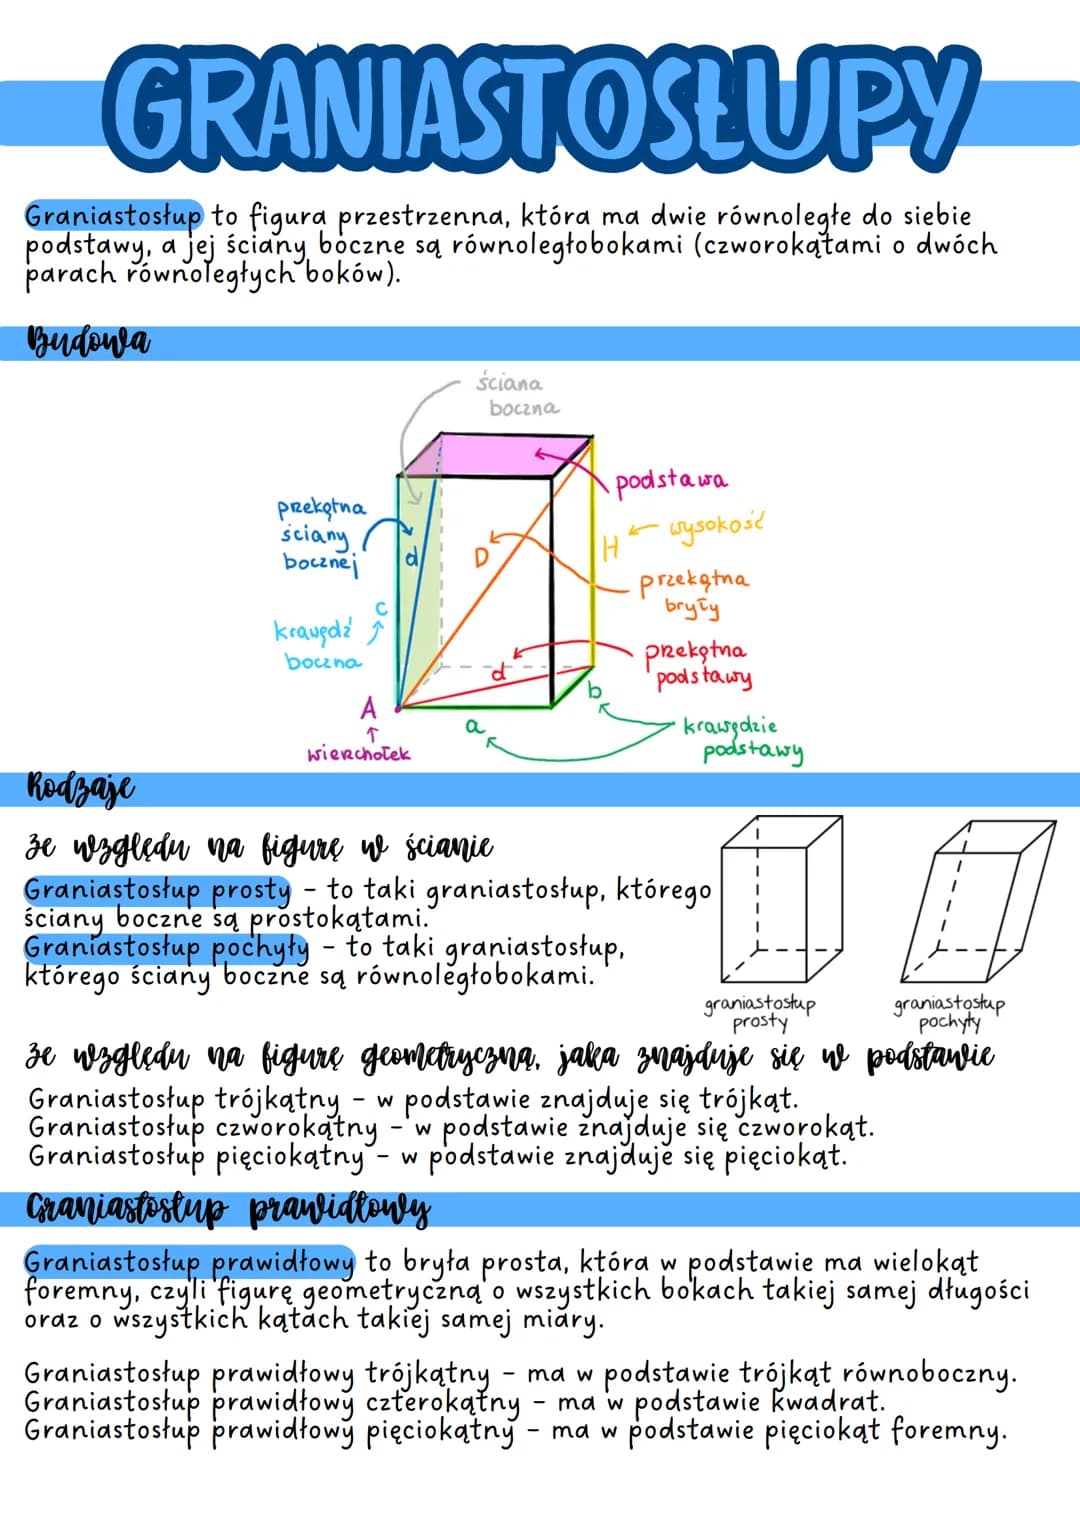 GRANIASTOSŁUPY
Graniastosłup to figura przestrzenna, która ma dwie równoległe do siebie
podstawy, a jej ściany boczne są równoległobokami (czworokątami o dwóch
parach równoległych boków).
Budowa
ściana
boczna
przekątna
ściany
bocznej
d
D
podstawa
wysokość
H
przekątna
bryły
c
krawędź
boczna
przekątna
podstawy
d
b
A
wierzchołek
a
krawędzie
podstawy
Rodzaje
Ze względu na figurę w ścianie
Graniastosłup prosty - to taki graniastosłup, którego
ściany boczne są prostokątami.
Graniastosłup pochyły - to taki graniastosłup,
którego ściany boczne są równoległobokami.
graniastosłup
prosty
graniastosłup
pochyły
Ze względu na figurę geometryczną, jaka znajduje się w podstawie
Graniastosłup trójkątny - w podstawie znajduje się trójkąt.
Graniastosłup czworokątny - w podstawie znajduje się czworokąt.
Graniastosłup pięciokątny - w podstawie znajduje się pięciokąt.
Graniastosłup prawidłowy
Graniastosłup prawidłowy to bryła prosta, która w podstawie ma wielokąt
foremny, czyli figurę geometryczną o wszystkich bokach takiej samej długości
oraz o wszystkich kątach takiej samej miary.
Graniastosłup prawidłowy trójkątny - ma w podstawie trójkąt równoboczny.
Graniastosłup prawidłowy czterokątny - ma w podstawie kwadrat.
Graniastosłup prawidłowy pięciokątny - ma w podstawie pięciokąt foremny.